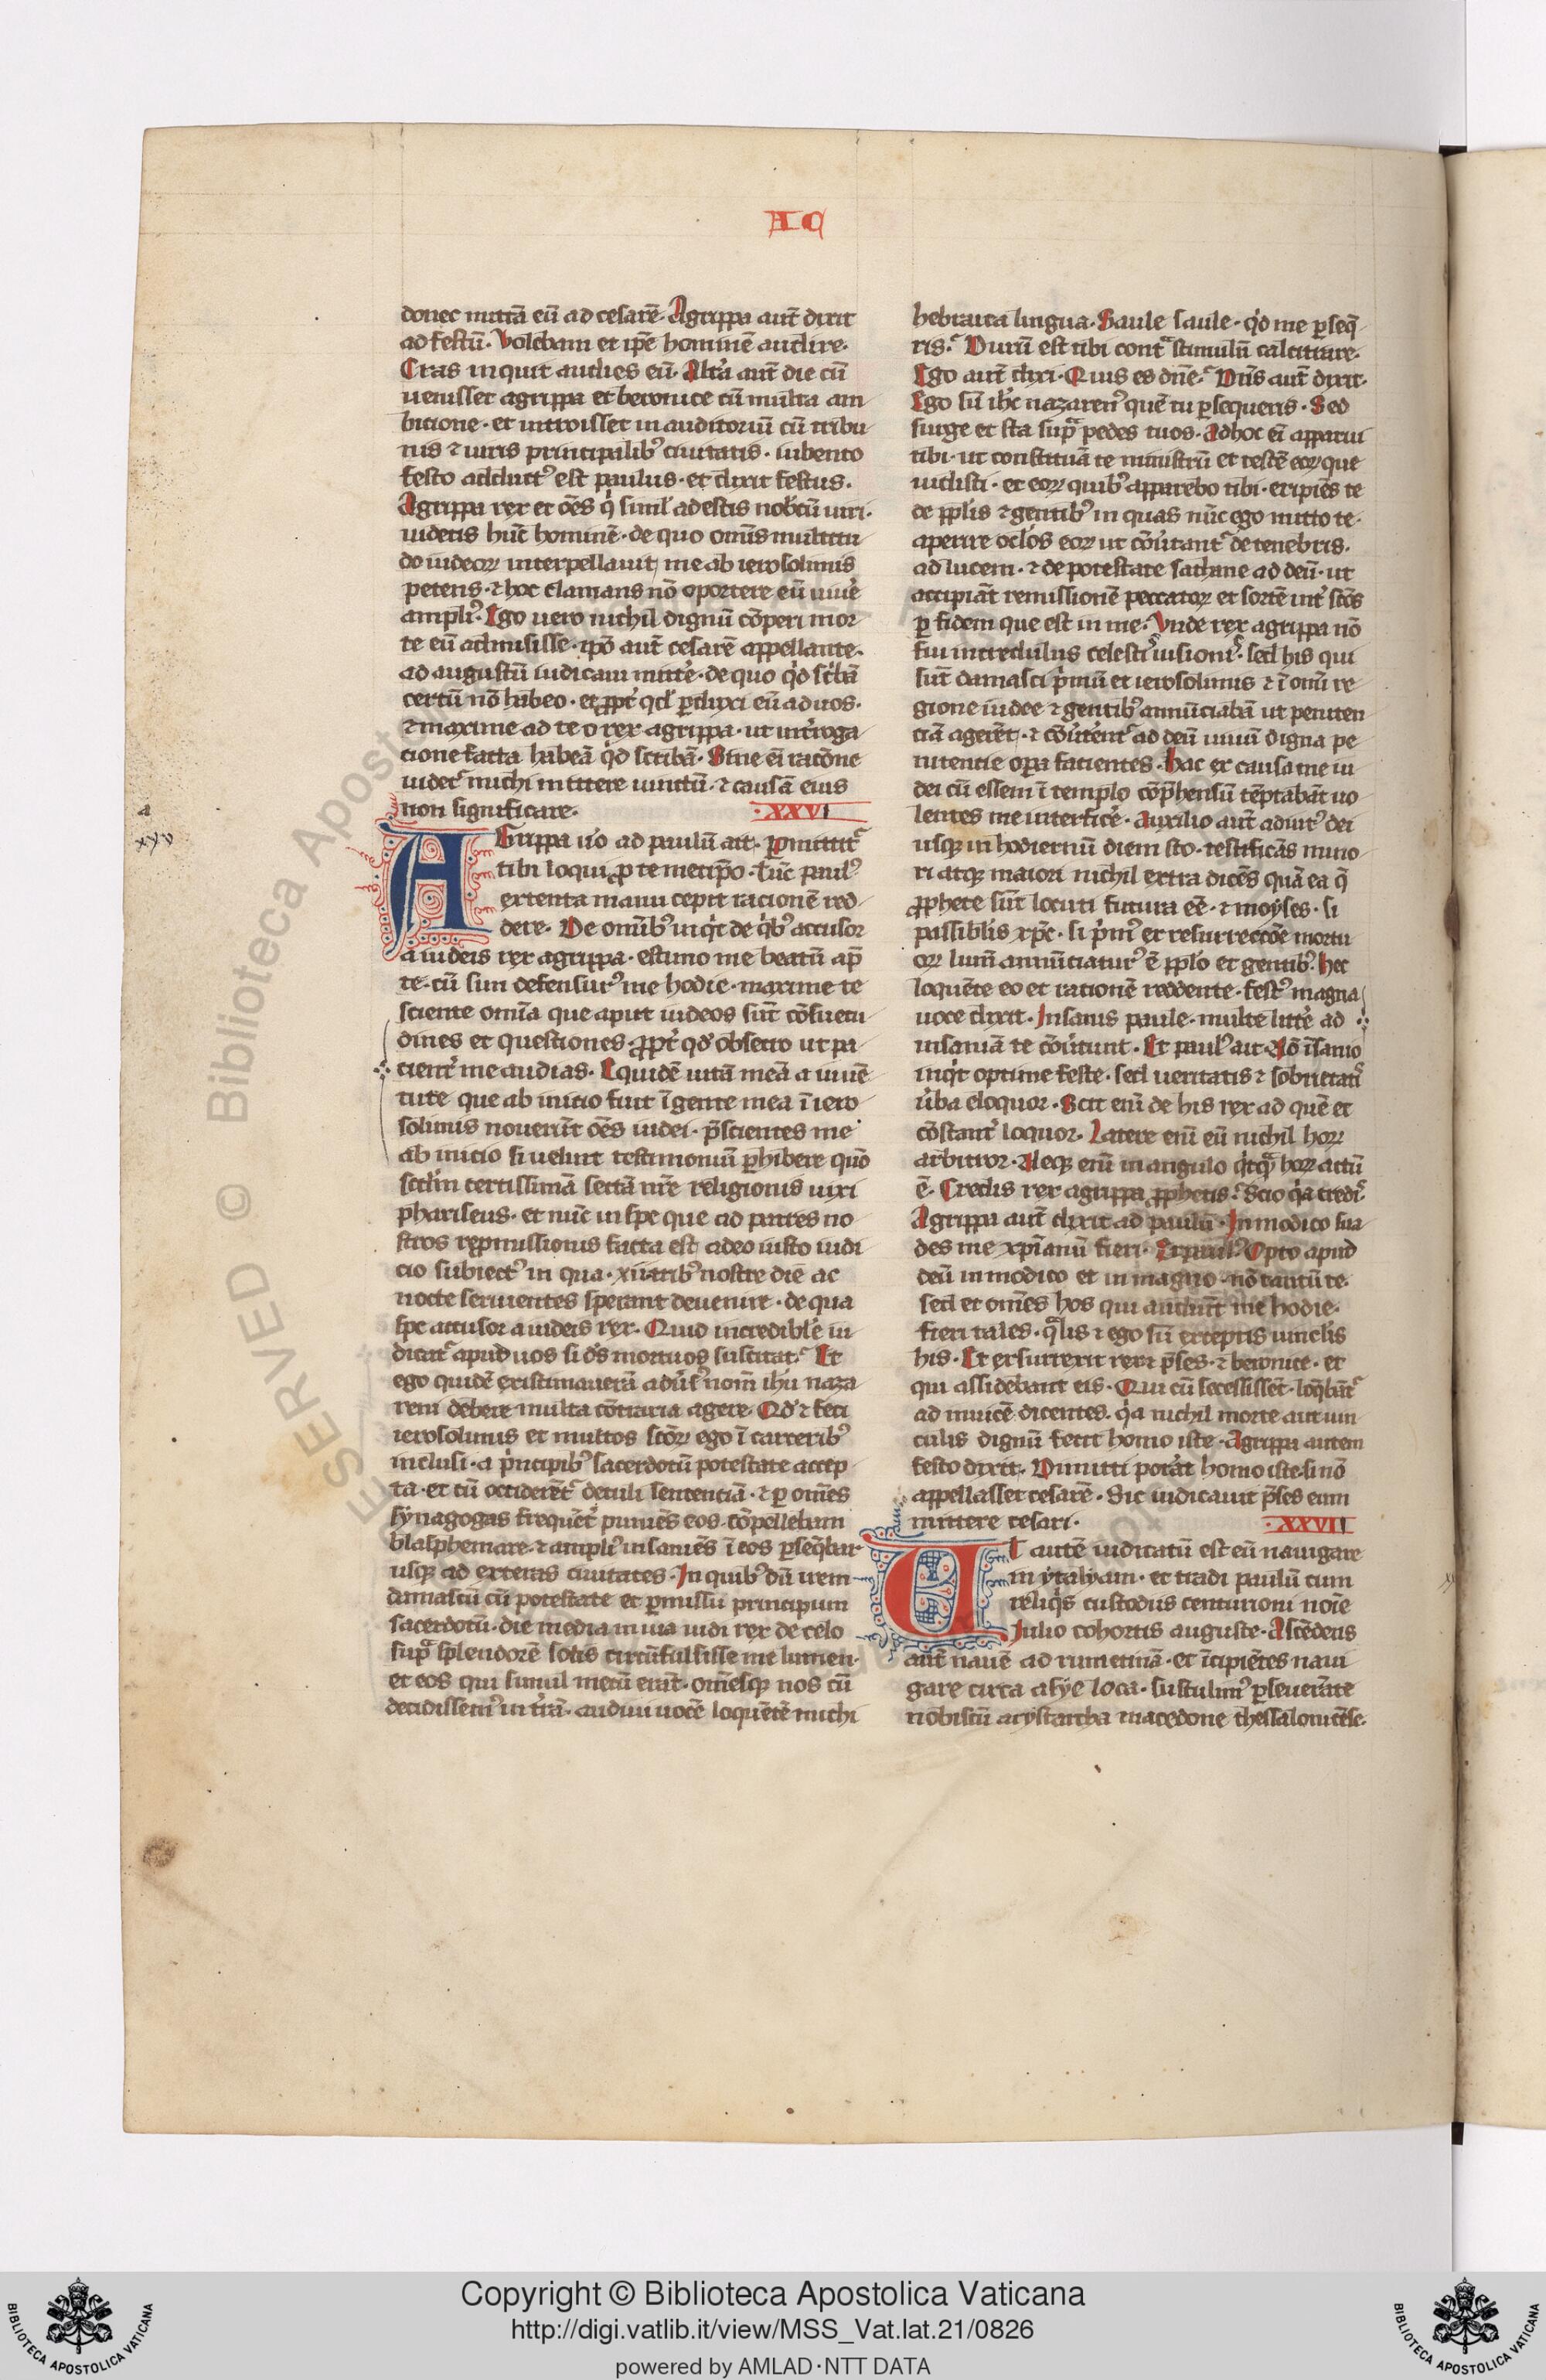 AC
donec mittā eū ad cesarē. Agrippa aut̄ dixit
ad festū. Volebam et ip̄e hominē audire.
Cras inquit audies eū. Alt'a aut̄ die cū
uenisset agrippa et beronice cū multa am
bitione · et introisset in auditoriū cū tribu
nis ⁊ uiris principalib' ciuitatis · iubento
festo adduct' est paulus · et dixit festus.
Agrippa rex et oēs q' simul adestis nobcū uiri.
uidetis hūc hominē · de quo omīs multitu
do iudeoꝝ interpellauit me ab ierosolimis
petens · ⁊ hoc clamans nō oportere eū uiue'
ampli'. Ego uero nichil dignū cōperi mor
te eū admisisse · ip̄o aut̄ cesarē appellante ·
ad augustū iudicaui mitte' · de quo qd sc'bā
certū nō habeo · et ꝓpt' qd' ꝑduxi eū ad uos ·
⁊ maxime ad te o rex agrippa · ut int'roga
tione facta habeā qd scribā. Sine eī racōne
uidet' michi mittere uinctū · ⁊ causā eius
non significare.
·XXVI
a
xxv
AGrippa u'o ad paulū ait. ꝑmittit'
tibi loqui ꝓ temetip̄o. tūc paul'
extenta manu cepit racionē red
dere. De omīb' inq't de q'b' accusor
a iudeis rex agrippa · estimo me beatū ap̄
te · cū sim defensur' me hodie · maxime te
sciente omīa que aput iudeos sūt cōsuetu
dines et questiones · ꝓpt' qd' obsecro ut pa
cient' me audias. Equidē uitā meā a iuuē
tute que ab initio fuit ī gente mea ī iero
solimis nouerūt oēs iudei · p̄scientes me
ab initio si uelint testimoniū ꝑhibere quō
scd'm certissimā sectā nr̄e religionis uixi
phariseus · et nūc in spe que ad patres no
stros repmissionis facta est adeo iusto iudi
cio subiect' in qua · xii · trib' nostre diē ac
nocte seruientes sperant deuenire · de qua
spe accusor a iudeis rex. Quid incredible iu
dicat' apud uos si ds̄ mortuos suscitat? Et
ego quidē existimauerā adu's' nom̄ ihū naza
reni debere multa cōtraria agere. Qd' ⁊ feci
ierosolimis et multos scōꝝ ego ī carcerib'
inclusi · a p'ncipib' sacerdotū potestate accep
ta · et cū occiderēt' detuli sententiā · ⁊ ꝑ omēs
synagogas frequēt' puniēs eos · cōpellebam
blasphemare · ⁊ ampli' insaniēs ī eos ꝑseq̄bar
usqꝫ ad exteras ciuitates · In quib' dū irem
damascū cū potestate et ꝑmissu principum
sacerdotū · die media in uia uidi rex de celo
sup' splendorē solis circūfulsisse me lumen ·
et eos qui simul mecū erāt · omēsqꝫ nos cū
decidissem' in t'rā · audiui uocē loquētē michi
hebraica lingua. Saule saule · qd me ꝑseq̄
ris? Durū est tibi cont' stimulū calcitrare.
Ego aut̄ dixi. Quis es dn̄e? Dn̄s aut̄ dixit.
Ego sū ih̄c nazaren' quē tu ꝑsequeris. Sed
surge et sta sup' pedes tuos. Ad hoc eī apparui
tibi · ut constituā te ministrū et testē eoꝝ que
uidisti · et eoꝝ quib' apparebo tibi · eripiēs te
de pplīs ⁊ gentib' in quas nūc ego mitto te ·
aperire oclōs eoꝝ ut cōu'tant' de tenebris.
ad lucem · ⁊ de potestate sathane ad deū · ut
accipiāt remissionē peccatoꝝ et sortē int' scōs
ꝑ fidem que est in me. Vnde rex agrippa nō
fui incredulus celesti uisioni · sed his qui
sūt damasci p'mū et ierosolimis ⁊ ī omī re
gione iudee ⁊ gentib' annūciabā ut peniten
ciā agerēt · ⁊ cōu'terēt' ad deū uiuū digna pe
nitentie oꝑa facientes. Hac ex causa me iu
dei cū essem ī templo cōp̄hensū tēptabāt uo
lentes me interfice'. Auxilio aut̄ adiut' dei
usqꝫ in hodiernū diem sto · testificās mino
ri atqꝫ maiori nichil extra dicēs quā ea q̄
ꝓphete sūt locuti futura eē · ⁊ moyses · si
passiblis xp̄c · si p'm' ex resurrectōe mortu
oꝝ lum̄ annūciatur' ē pplo et gentib'. Hec
loquēte eo et rationē reddente · fest' magna
uoce dixit. Insanis paule · multe litt'e ad
insaniā te cōu'tunt. Et paul' ait. Nō īsanio
inq't optime feste · sed ueritatis ⁊ sobrietati'
u'ba eloquor. Scit enī de his rex ad quē et
cōstant' loquor. Latere enī eū nichil hoꝝ
arbitror. Neqꝫ enī in angulo q'cq' hoꝝ actū
ē. Credis rex agrippa ꝓphetis? Scio q'a credi'
Agrippa aut̄ dixit ad paulū. In modico sua
des me xpīanū fieri. Et paul'. Opto apud
deū in modico et in magno · nō tantū te
sed et omēs hos qui audiūt me hodie ·
fieri tales · q'lis ⁊ ego sū exceptis uinclīs
his. Et exsurrexit rex ⁊ p̄ses · ⁊ beronice · et
qui assidebant eis. Qui cū secessissēt · loq̄bāt'
ad inuicē dicentes. q'a nichil morte aut uin
culis dignū fecit homo iste. Agrippa autem
festo dixit. Dimitti pot'at homo iste · si nō
appellasset cesarē. Sic iudicauit p̄ses eum
mittere cesari.
·XXVII
UT autē iudicatū est eū nauigare
in ytalyam · et tradi paulū cum
reliq's custodiis centurioni noīe
Julio cohortis auguste. Ascēdens
aut̄ nauē ad rumetinā · et īcipiētes naui
gare circa asye loca · sustulim' ꝑseuerāte
nobiscū arystarcha macedone thessalonicēse.
Copyright © Biblioteca Apostolica Vaticana
http://digi.vatlib.it/view/MSS_Vat.lat.21/0826
powered by AMLAD·NTT DATA
BIBLIOTECA APOSTOLICA VATICANA
BIBLIOTECA APOSTOLICA VATICANA